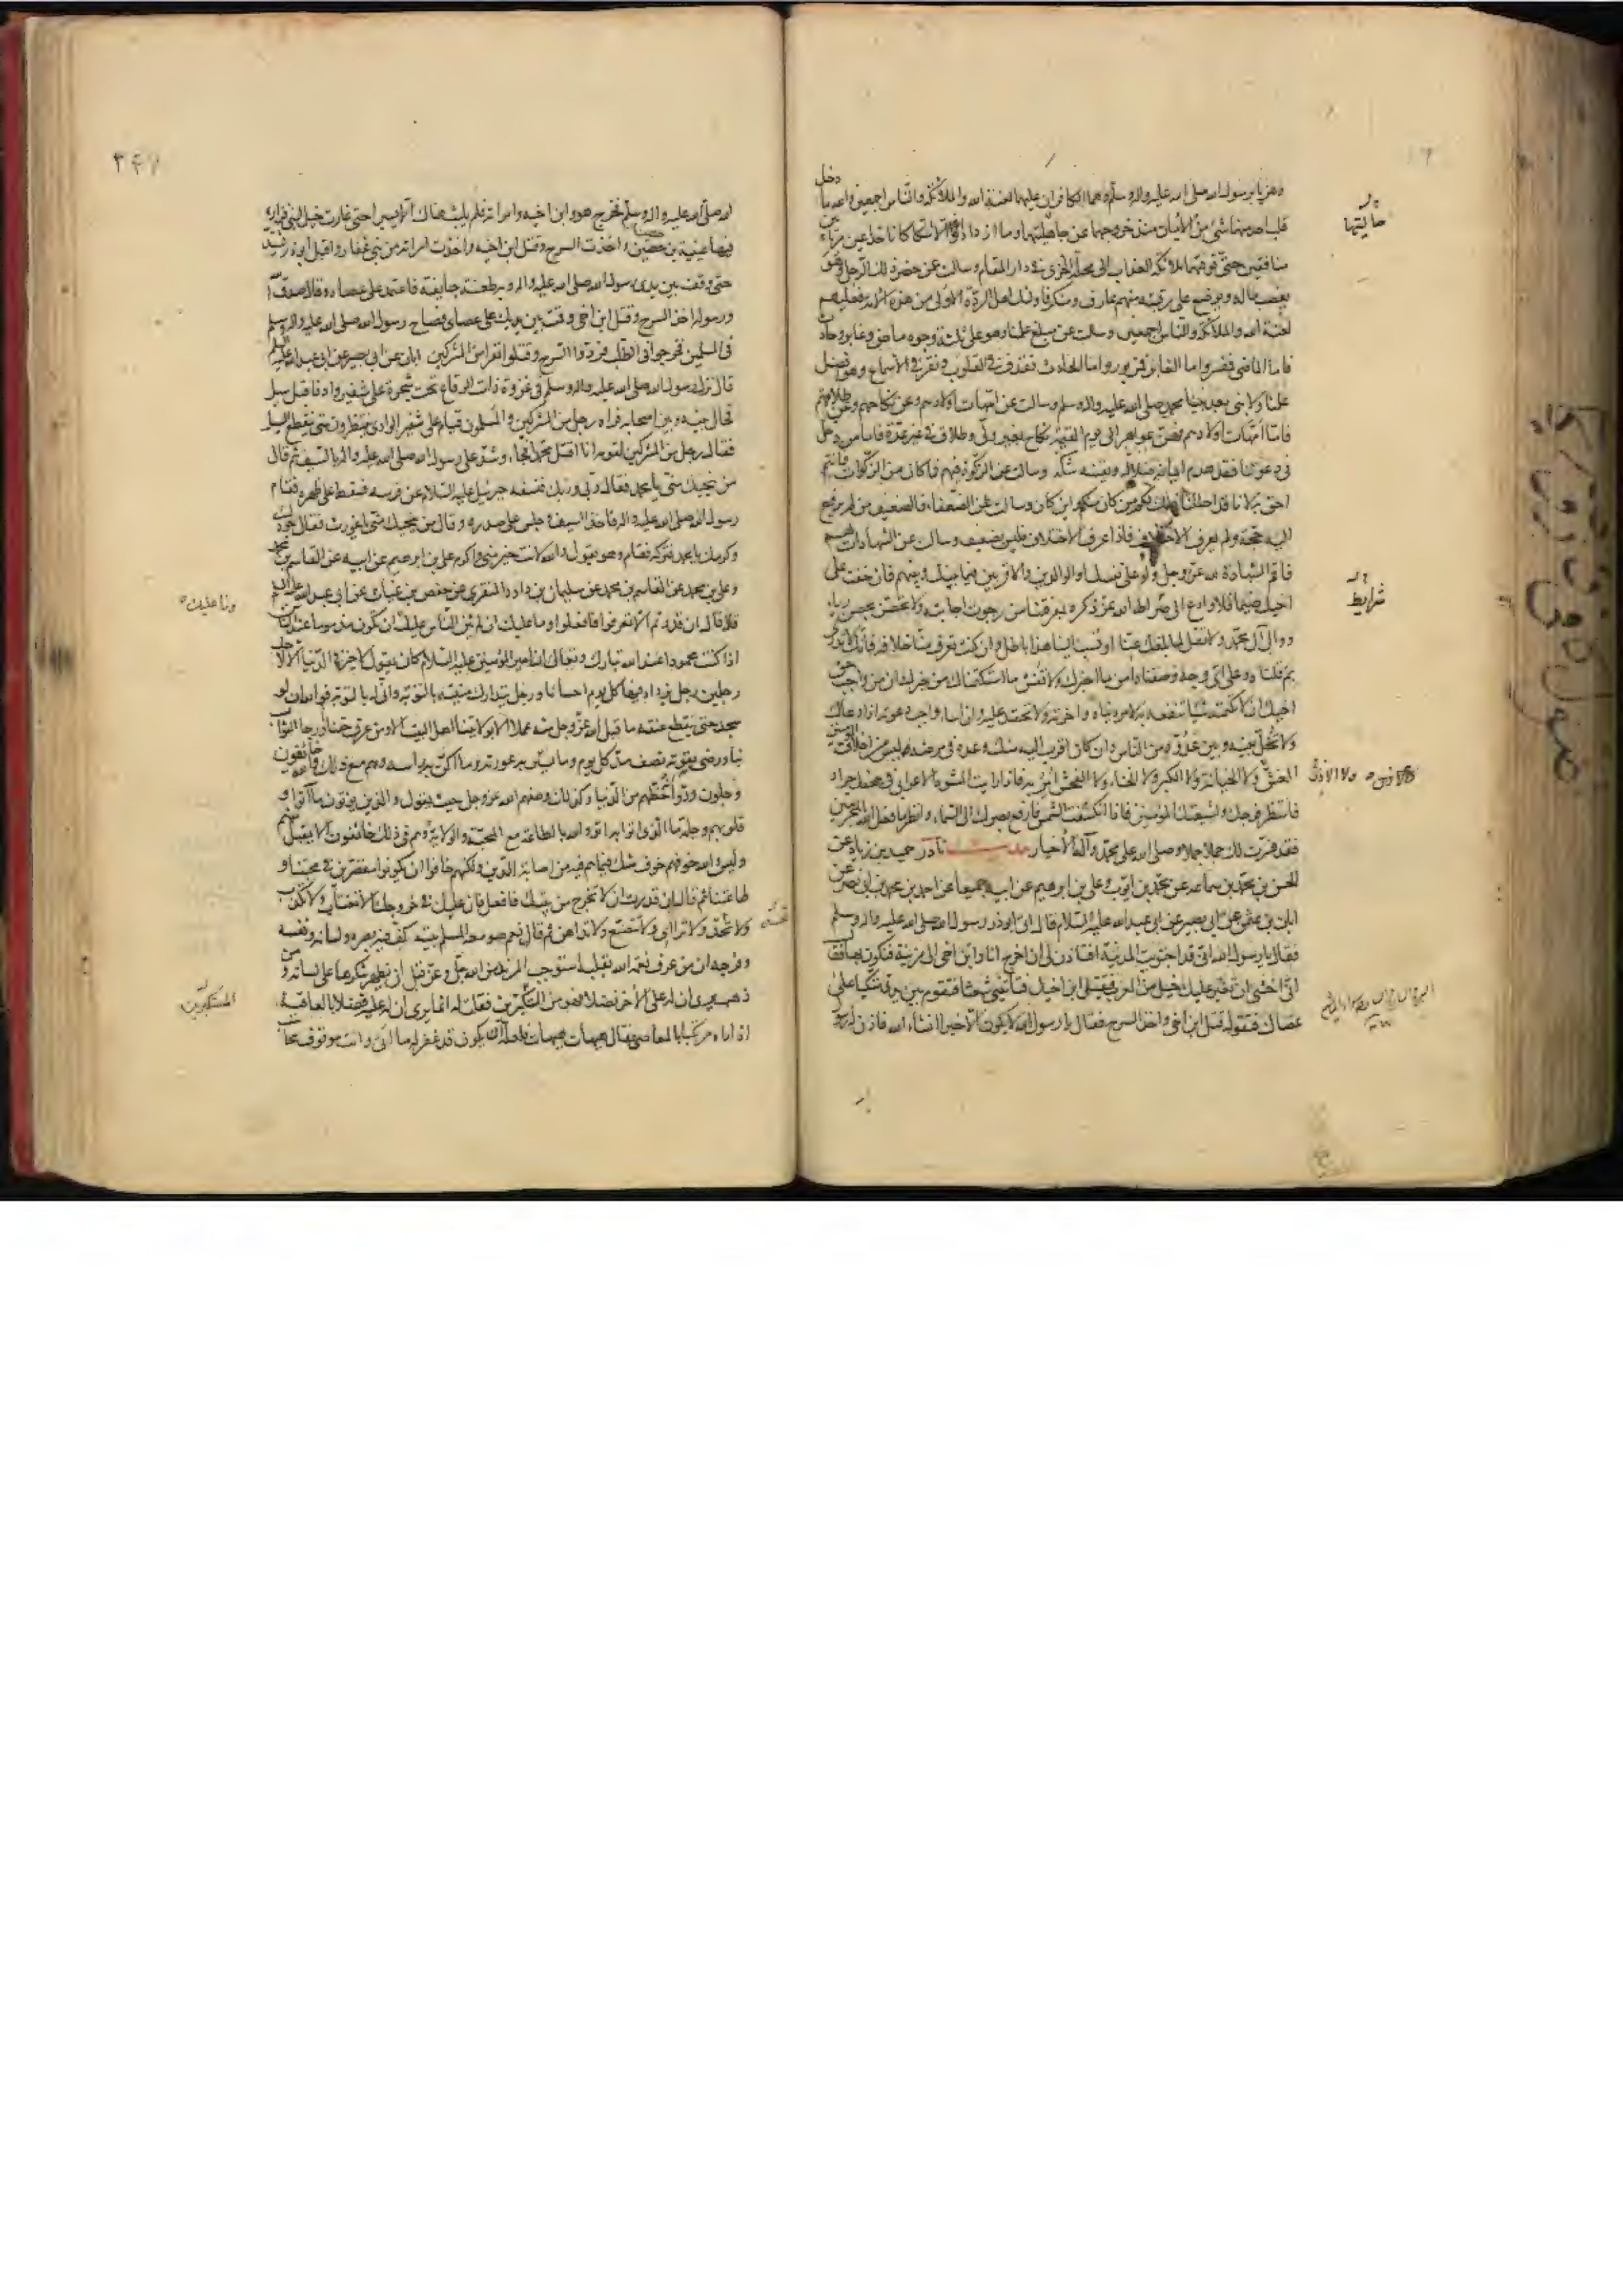 وهزئا برسول الله صلى الله عليه واله وسلم وهما الكافران عليهما لعنة الله والملائكة والناس اجمعين والله ما دخل
قلب احد منهما شئ من الايمان منذ خروجهما عن جاهليتهما وما ازدادا الا شكا كانا خداعين مرتابين
منافقين حتى توفتهما ملائكة العذاب الى محل الخزى فى دار المقام وسالت عن حضر ذلك الرجل وهو
يغصب ماله ويوضع على رقبته منهم عارف ومنكر فاولئك اهل الردة الاولى من هذه الامة فعليهم
لعنة الله والملائكة والناس اجمعين وسالت عن مبلغ علمنا وهو على ثلثة وجوه ماض وغابر وحادث
فاما الماضى فمفسر واما الغابر فمزبور واما الحادث فقذف فى القلوب ونقر فى الاسماع وهو افضل
علمنا ولا نبى بعد نبينا محمد صلى الله عليه واله وسلم وسالت عن امهات اولادهم وعن نكاحهم وعن طلاقهم
فاما امهات اولادهم فهن عواهر الى يوم القيمة نكاح بغير ولى وطلاق فى غير عدة فاما من دخل
فى دعوتنا فقد هدم ايمانه ضلاله ويقينه شكه وسالت عن الزكوة فيهم فما كان من الزكوات فانتم
احق به لانا قد احللنا ذلك لكم من كان منكم واين كان وسالت عن الضعفاء فالضعيف من لم يرفع
اليه حجة ولم يعرف الاختلاف فاذا عرف الاختلاف فليس بضعيف وسالت عن الشهادات لهم
فاقم الشهادة لله عز وجل ولو على نفسك او الوالدين والاقربين فيما بينك وبينهم فان خفت على
اخيك ضيما فلا وادع الى صراط الله عز ذكره بمعرفتنا من رجوت اجابته ولا تحصن بحصن رياء
ووالى آل محمد ولا تقل لما بلغك عنا او نسب الينا هذا باطل وان كنت تعرف منا خلافه فانك لا تدرى
لم قلناه وعلى اى وجه وصفناه امن بما اخبرك ولا تفش ما استكتمناك من خبرك ان من واجب حق
اخيك ان لا تكتمه شيئا تنفعه به لامر دنياه واخرته ولا تحقد عليه وان اساء واجب دعوته اذا دعاك
ولا تخل بينه وبين عدوه من الناس وان كان اقرب اليه منك وعده فى مرضه ليس من اخلاق المؤمنين
الغش ولا الاذى ولا الخيانة ولا الكبر ولا الخنا ولا الفحش ولا الامر به فاذا رايت المشوه الاعرابى فى جحفل جرار
فانتظر فرجك ولشيعتك المؤمنين فاذا انكسفت الشمس فارفع بصرك الى السماء وانظر ما فعل الله بالمجرمين
فقد فسرت لك جملا جملا وصلى الله على محمد وآله الاخيار حديث نادر حميد بن زياد عن
الحسن بن محمد بن سماعه عن محمد بن ايوب وعلى بن ابرهيم عن ابيه جميعا عن احمد بن محمد بن ابى نصر عن
ابان بن عثمن عن ابى بصير عن ابى عبد الله عليه السلام قال اتى ابو ذر رسول الله صلى الله عليه واله وسلم
فقال يا رسول الله انى قد اجتويت المدينة افتاذن لى ان اخرج انا وابن اخى الى مزينة فنكون بها فقال
انى اخشى ان تغير عليك خيل من العرب فتقتل ابن اخيك فتاتينى شعثا فتقوم بين يدى متكيا على
عصاك فتقول قتل ابن اخى واخذ السرح فقال يا رسول الله لا يكون الا خيرا انشاء الله فاذن له رسول
جاهليتهما
شرايط
ولا الاذى
الله صلى الله عليه واله وسلم فخرج هو وابن اخيه وامراته فلم يلبث هناك الا يسيرا حتى غارت خيل لبنى فزارة
فيها عيينة بن حصين واخذت السرح وقتل ابن اخيه واخذت امراته من بنى غفار واقبل ابو ذر يشتد
حتى وقف بين يدى رسول الله صلى الله عليه واله وبه طعنة جايفة فاعتمد على عصاه وقال صدق الله
ورسوله اخذ السرح وقتل ابن اخى وقمت بين يديك على عصاى فصاح رسول الله صلى الله عليه واله وسلم
فى المسلمين فخرجوا فى الطلب فردوا السرح وقتلوا نفرا من المشركين ابان عن ابى بصير عن ابى عبد الله عليه السلام
قال نزل رسول الله صلى الله عليه واله وسلم فى غزوة ذات الرقاع تحت شجرة على شفير واد فاقبل سيل
فحال بينه وبين اصحابه فراه رجل من المشركين والمسلمون قيام على شفير الوادى ينتظرون متى ينقطع السيل
فقال رجل من المشركين لقومه انا اقتل محمدا فجاء وشد على رسول الله صلى الله عليه واله بالسيف ثم قال
من ينجيك منى يا محمد فقال ربى وربك فنسفه جبرئيل عليه السلام عن فرسه فسقط على ظهره فقام
رسول الله صلى الله عليه واله فاخذ السيف وجلس على صدره وقال من ينجيك منى يا غورث فقال جودك
وكرمك يا محمد فتركه فقام وهو يقول والله لانت خير منى واكرم على بن ابرهيم عن ابيه عن القاسم بن محمد
وعلى بن محمد عن القاسم بن محمد عن سليمان بن داود المنقرى عن حفص بن غياث عن ابى عبد الله عليه السلام
قال ان قدرتم الا تعرفوا فافعلوا وما عليك ان لم يثن الناس عليك ان تكون مذموما عند الناس
اذا كنت محمودا عند الله تبارك وتعالى ان امير المؤمنين عليه السلام كان يقول لا خير فى الدنيا الا لاحد
رجلين رجل يزداد فيها كل يوم احسانا ورجل يتدارك منيته بالتوبة وانى له بالتوبة فوالله ان لو
سجد حتى ينقطع عنقه ما قبل الله عز وجل منه عملا الا بولايتنا اهل البيت الا ومن عرف حقنا ورجا الثواب
بنا ورضى بقوته نصف مد كل يوم وما يستر به عورته وما اكن به راسه وهم مع ذلك والله خائفون
وجلون ودوا انه حظهم من الدنيا وكذلك وصفهم الله عز وجل حيث يقول والذين يؤتون ما آتوا و
قلوبهم وجلة ما الذى اتوا به اتوا والله بالطاعة مع المحبة والولاية وهم فى ذلك خائفون الا يقبل منهم
وليس والله خوفهم خوف شك فيما هم فيه من اصابة الدين ولكنهم خافوا ان يكونوا مقصرين فى محبتنا و
طاعتنا ثم قال ان قدرت ان لا تخرج من بيتك فافعل فان عليك فى خروجك الا تغتاب ولا تكذب
ولا تحسد ولا ترائى ولا تتصنع ولا تداهن ثم قال نعم صومعة المسلم بيته يكف فيه بصره ولسانه ونفسه
وفرجه ان من عرف نعمة الله بقلبه استوجب المزيد من الله جل وعز قبل ان يظهر شكرها على لسانه ومن
ذهب يرى ان له على الاخر فضلا فهو من المستكبرين فقلت له انما يرى ان له عليه فضلا بالعافية
اذ اراه مرتكبا للمعاصى فقال هيهات هيهات فلعله ان يكون قد غفر له ما اتى وانت موقوف تحاسب
وما عليك
المستكبرين